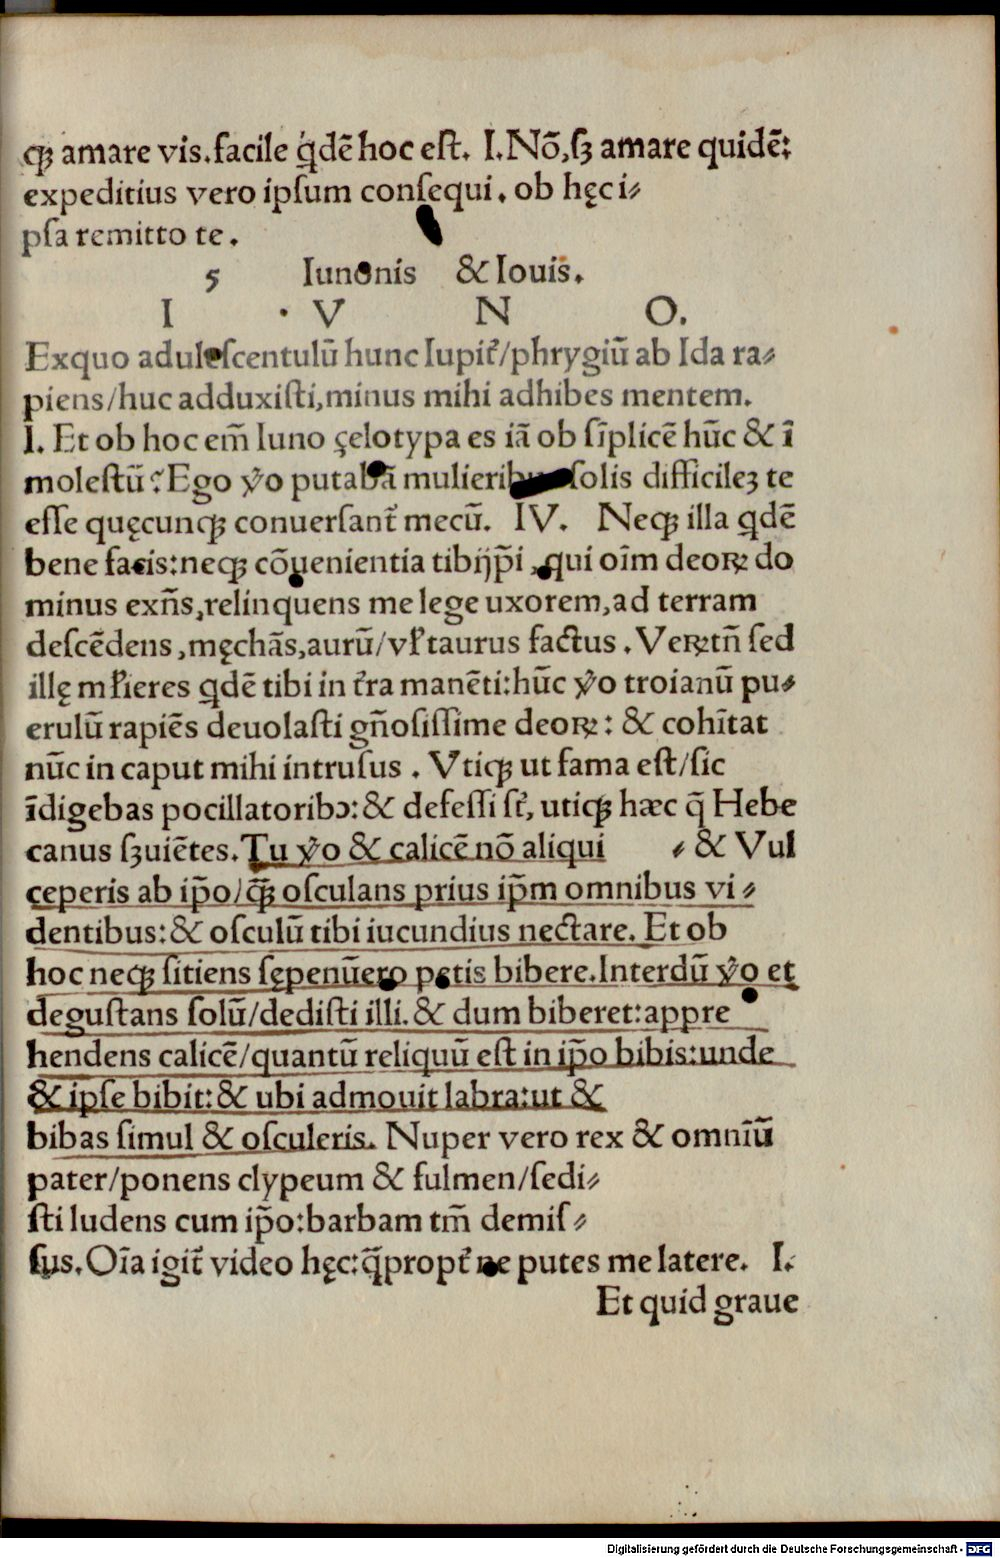 qꝫ amare vis.facile q̇dē hoc est. I.Nō,sꝫ amare quidē:
expeditius vero ipsum consequi. ob hęc i⸗
psa remitto te.
5 Iunonis & Iouis.
I · V N O.
Exquo adulescentulū hunc Iupit̉/phrygiū ab Ida ra⸗
piens/huc adduxisti,minus mihi adhibes mentem.
I. Et ob hoc em̄ Iuno çelotypa es iā ob sīplicē hūc & ī
molestū? Ego ỷo putabā mulieribus solis difficileꝫ te
esse quęcunqꝫ conuersant̉ mecū. IV. Neqꝫ illa q̇dē
bene facis:neqꝫ cōuenientia tibijp̄i ,qui oīm deoꝝ do
minus exn̄s,relinquens me lege uxorem,ad terram
descēdens,męchās,aurū/vl̉ taurus factus. Veꝝtn̄ sed
illę ml̉ieres q̇dē tibi in t̉ra manēti:hūc ỷo troianū pu⸗
erulū rapiēs deuolasti gn̄osissime deoꝝ: & cohītat
nūc in caput mihi intrusus. Vtiqꝫ ut fama est/sic
īdigebas pocillatoribꝰ:& defessi st̉, utiqꝫ hæc q̄ Hebe
canus sꝫuiētes.Tu ỷo & calicē nō aliqui ⸗ & Vul
ceperis ab ip̄o/q̄ꝫ osculans prius ip̄m omnibus vi⸗
dentibus:& osculū tibi iucundius nectare. Et ob
hoc neqꝫ sitiens sępenūero petis bibere.Interdū ỷo et
degustans solū/dedisti illi.& dum biberet:appre
hendens calicē/quantū reliquū est in ip̄o bibis:unde
& ipse bibit:& ubi admouit labra:ut &
bibas simul & osculeris. Nuper vero rex & omnīū
pater/ponens clypeum & fulmen/sedi⸗
sti ludens cum ip̄o:barbam tm̄ demis⸗
sus.Oīa igit̉ video hęc:q̄propt̉ ne putes me latere. I.
Et quid graue
Digitalisierung gefördert durch die Deutsche Forschungsgemeinschaft - DFG